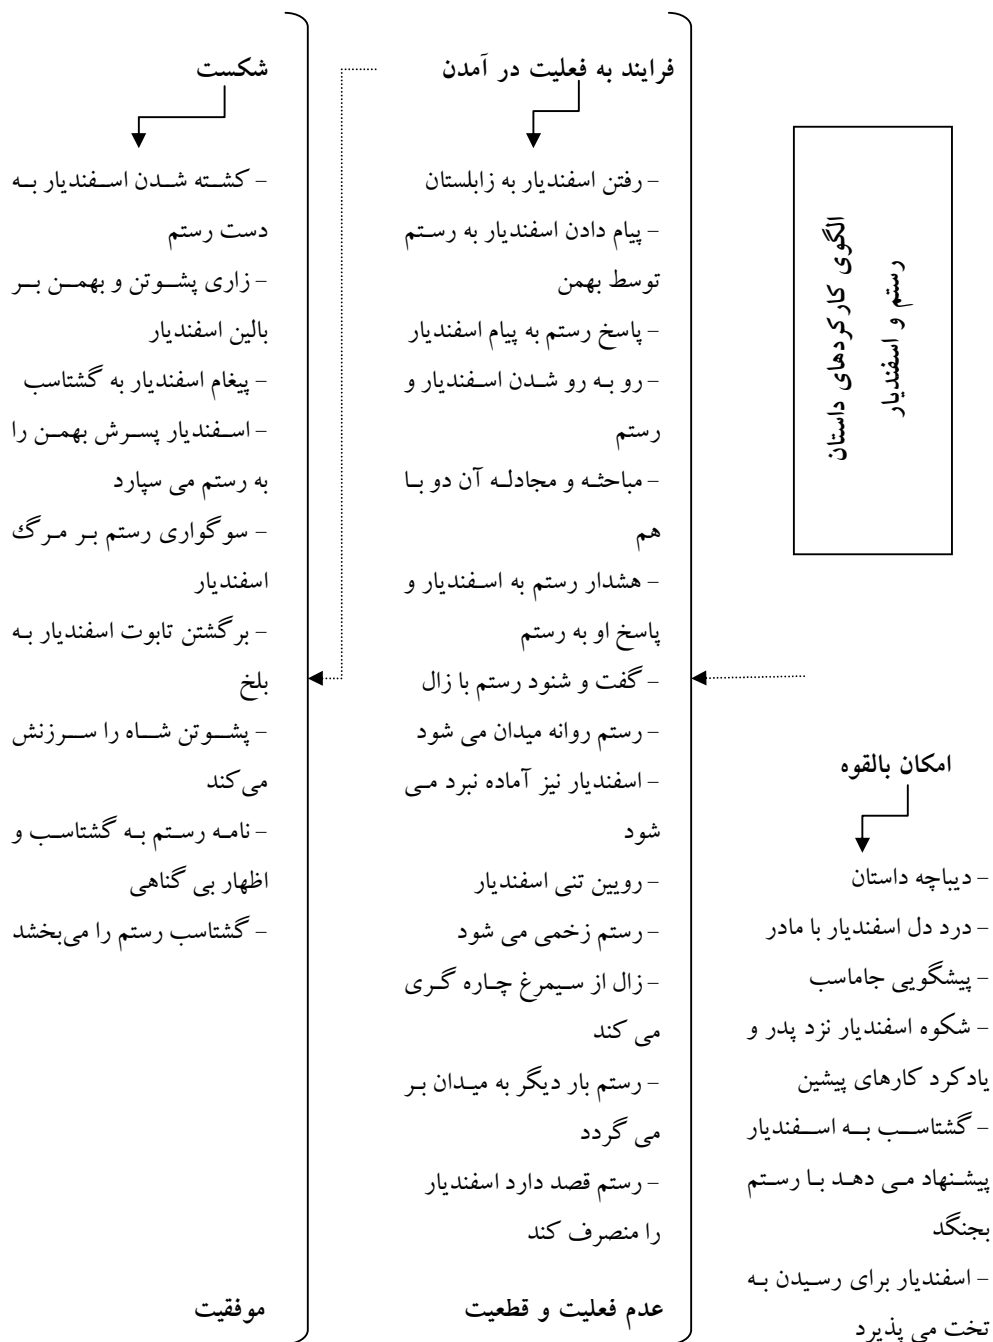 الگوی کارکردهای داستان
رستم و اسفندیار
امکان بالقوه
– دیباچه داستان
– درد دل اسفندیار با مادر
– پیشگویی جاماسب
– شکوه اسفندیار نزد پدر و
یادکرد کارهای پیشین
– گشتاسب به اسفندیار
پیشنهاد می دهد با رستم
بجنگد
– اسفندیار برای رسیدن به
تخت می پذیرد
فرایند به فعلیت در آمدن
– رفتن اسفندیار به زابلستان
– پیام دادن اسفندیار به رستم
توسط بهمن
– پاسخ رستم به پیام اسفندیار
– رو به رو شدن اسفندیار و
رستم
– مباحثه و مجادله آن دو با
هم
– هشدار رستم به اسفندیار و
پاسخ او به رستم
– گفت و شنود رستم با زال
– رستم روانه میدان می شود
– اسفندیار نیز آماده نبرد می
شود
– رویین تنی اسفندیار
– رستم زخمی می شود
– زال از سیمرغ چاره گری
می کند
– رستم بار دیگر به میدان بر
می گردد
– رستم قصد دارد اسفندیار
را منصرف کند
عدم فعلیت و قطعیت
شکست
– کشته شدن اسفندیار به
دست رستم
– زاری پشوتن و بهمن بر
بالین اسفندیار
– پیغام اسفندیار به گشتاسب
– اسفندیار پسرش بهمن را
به رستم می سپارد
– سوگواری رستم بر مرگ
اسفندیار
– برگشتن تابوت اسفندیار به
بلخ
– پشوتن شاه را سرزنش
می‌کند
– نامه رستم به گشتاسب و
اظهار بی گناهی
– گشتاسب رستم را می‌بخشد
موفقیت